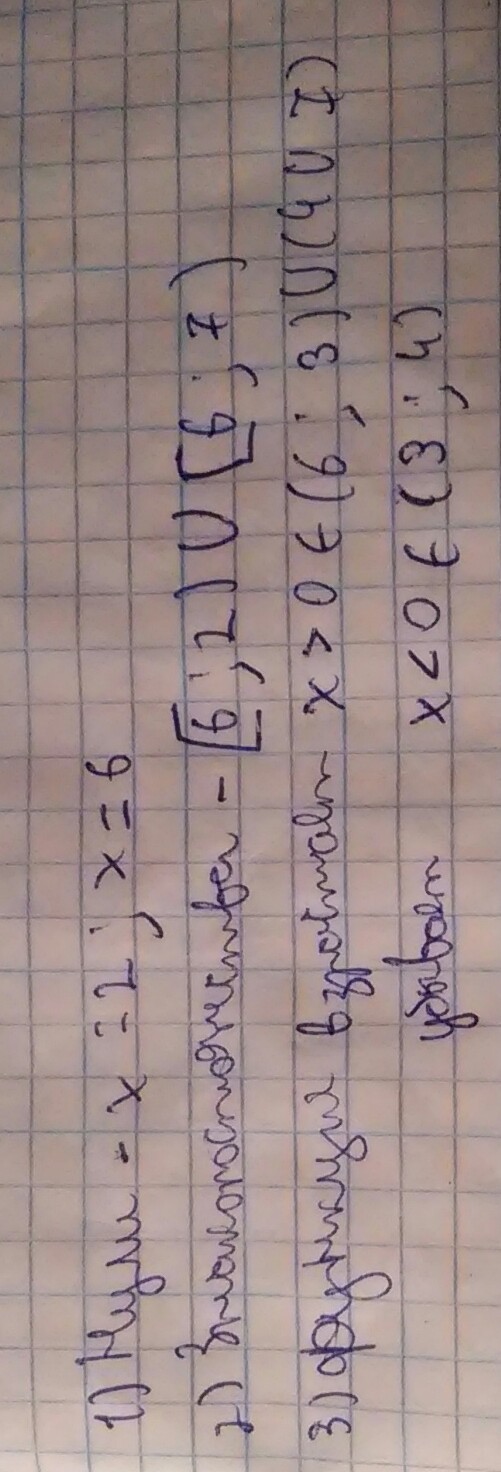 1) Нули - x = 2 ; x = 6
2) Знакопостоянства - [6 ; 2) U [6 ; 7)
3) Функция взрастает x > 0 ∈ (6 ; 3) U (4 U 7)
убывает x < 0 ∈ (3 ; 4)